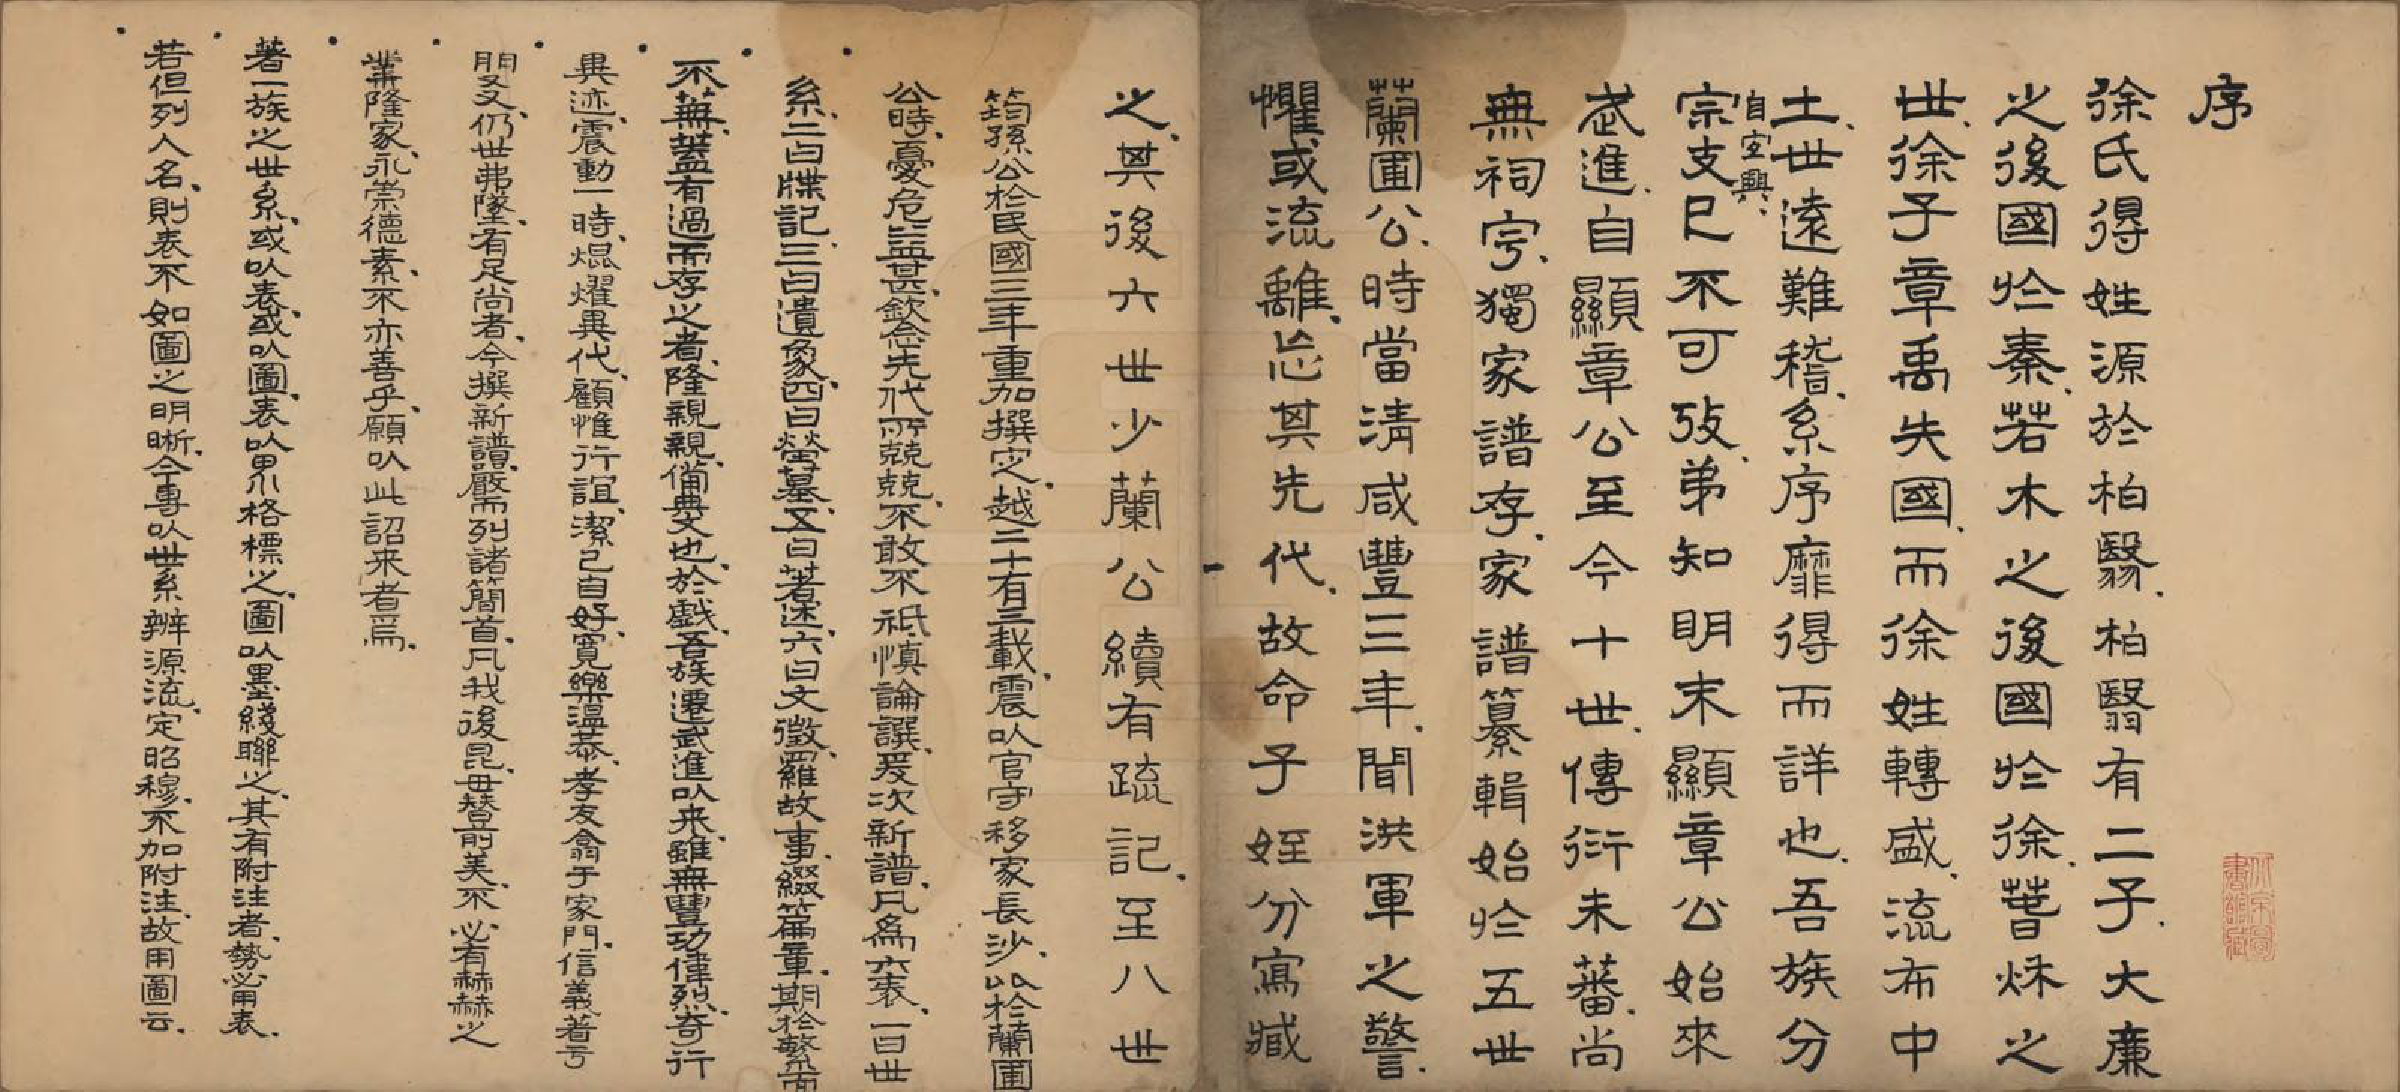 序
徐氏得姓源於柏翳、柏翳有二子、大廉
之後國於秦、若木之後國於徐、萅秌之
世、徐子章禹失國、而徐姓轉盛、流布中
土、世遠難稽、系序靡得而詳也、吾族分
自宜興、
宗支已不可攷、弟知明末顯章公始來
武進、自顯章公至今十世、傳衍未蕃、尚
無祠宇、獨家譜存、家譜纂輯始於五世
蘭圃公、時當清咸豐三年、聞洪軍之警、
懼或流離、忘其先代、故命子姪分寫臧
之、其後六世少蘭公續有疏記、至八世
筠孫公於民國三年重加撰定、越二十有三載、震以官守移家長沙、比於蘭圃
公時、憂危益甚、欽念先代所兢兢、不敢不祇慎論譔、爰次新譜、凡為六表、一曰世
系、二曰牒記、三曰遺象、四曰塋墓、五曰著述、六曰文徵、羅故事、綴篇章、期於繁而
不蕪、蓋有過而存之者、隆親親、備典文也、於戲、吾族遷武進以來、雖無豐功偉烈、奇行
異迹、震動一時、焜燿異代、顧惟行誼潔己自好、寬樂溫恭、孝友翕于家門、信義著于
朋友、仍世弗墜、有足尚者、今撰新譜、嚴而列諸簡首、凡我後昆、毋替前美、不必有赫赫之
業、隆家、永崇德素、不亦善乎、願以此詔来者焉、
著一族之世系、或以表、或以圖、表以界格標之、圖以墨綫聯之、其有附注者、勢必用表、
若但列人名、則表不如圖之明晰、今專以世系辨源流、定昭穆、不加附注、故用圖云、